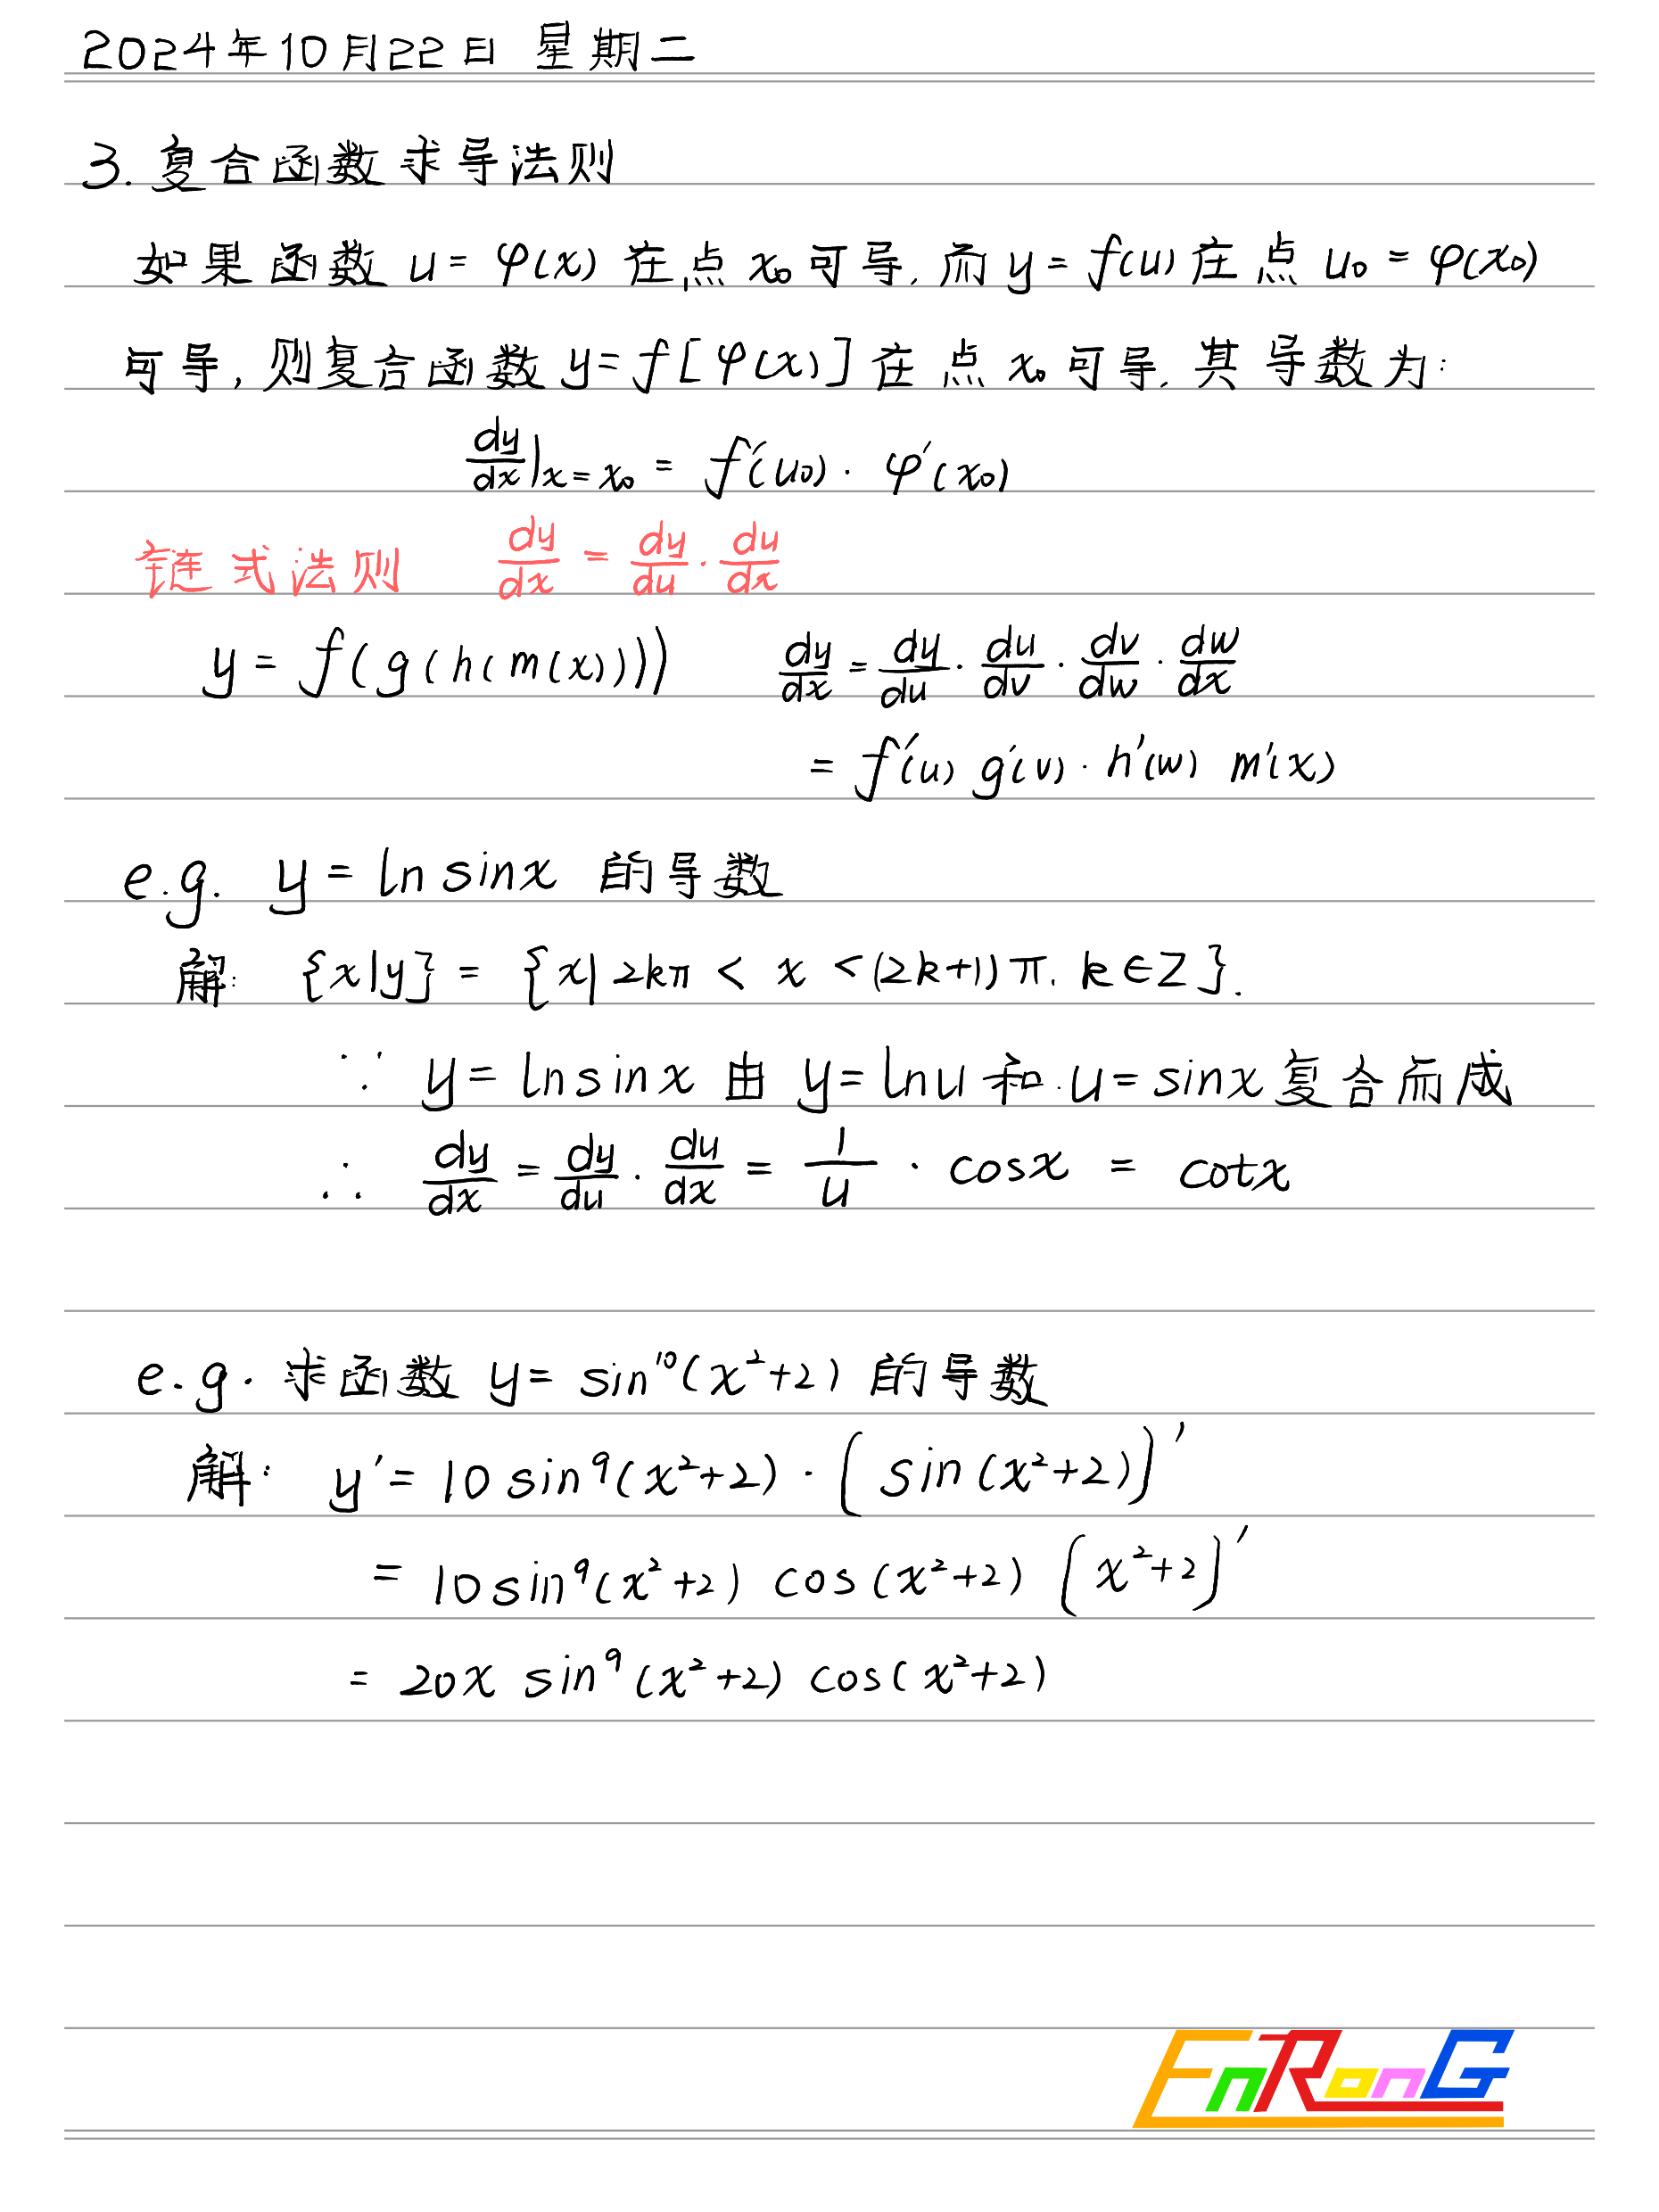 2024年10月22日 星期二
3. 复合函数求导法则
如果函数 u = φ(x) 在点 x₀ 可导, 而 y = f(u) 在点 u₀ = φ(x₀)
可导, 则复合函数 y = f[φ(x)] 在点 x₀ 可导, 其导数为:
dy/dx|x=x₀ = f'(u₀) · φ'(x₀)
链式法则 dy/dx = dy/du · du/dx
y = f(g(h(m(x)))) dy/dx = dy/du · du/dv · dv/dw · dw/dx
= f'(u) g'(v) · h'(w) m'(x)
e.g. y = ln sinx 的导数
解: {x|y} = {x| 2kπ < x < (2k+1)π, k∈Z}.
∵ y = ln sinx 由 y = lnu 和 u = sinx 复合而成
∴ dy/dx = dy/du · du/dx = 1/u · cosx = cotx
e.g. 求函数 y = sin¹⁰(x²+2) 的导数
解: y' = 10 sin⁹(x²+2) · [sin(x²+2)]'
= 10 sin⁹(x²+2) cos(x²+2) [x²+2]'
= 20x sin⁹(x²+2) cos(x²+2)
EnRonG